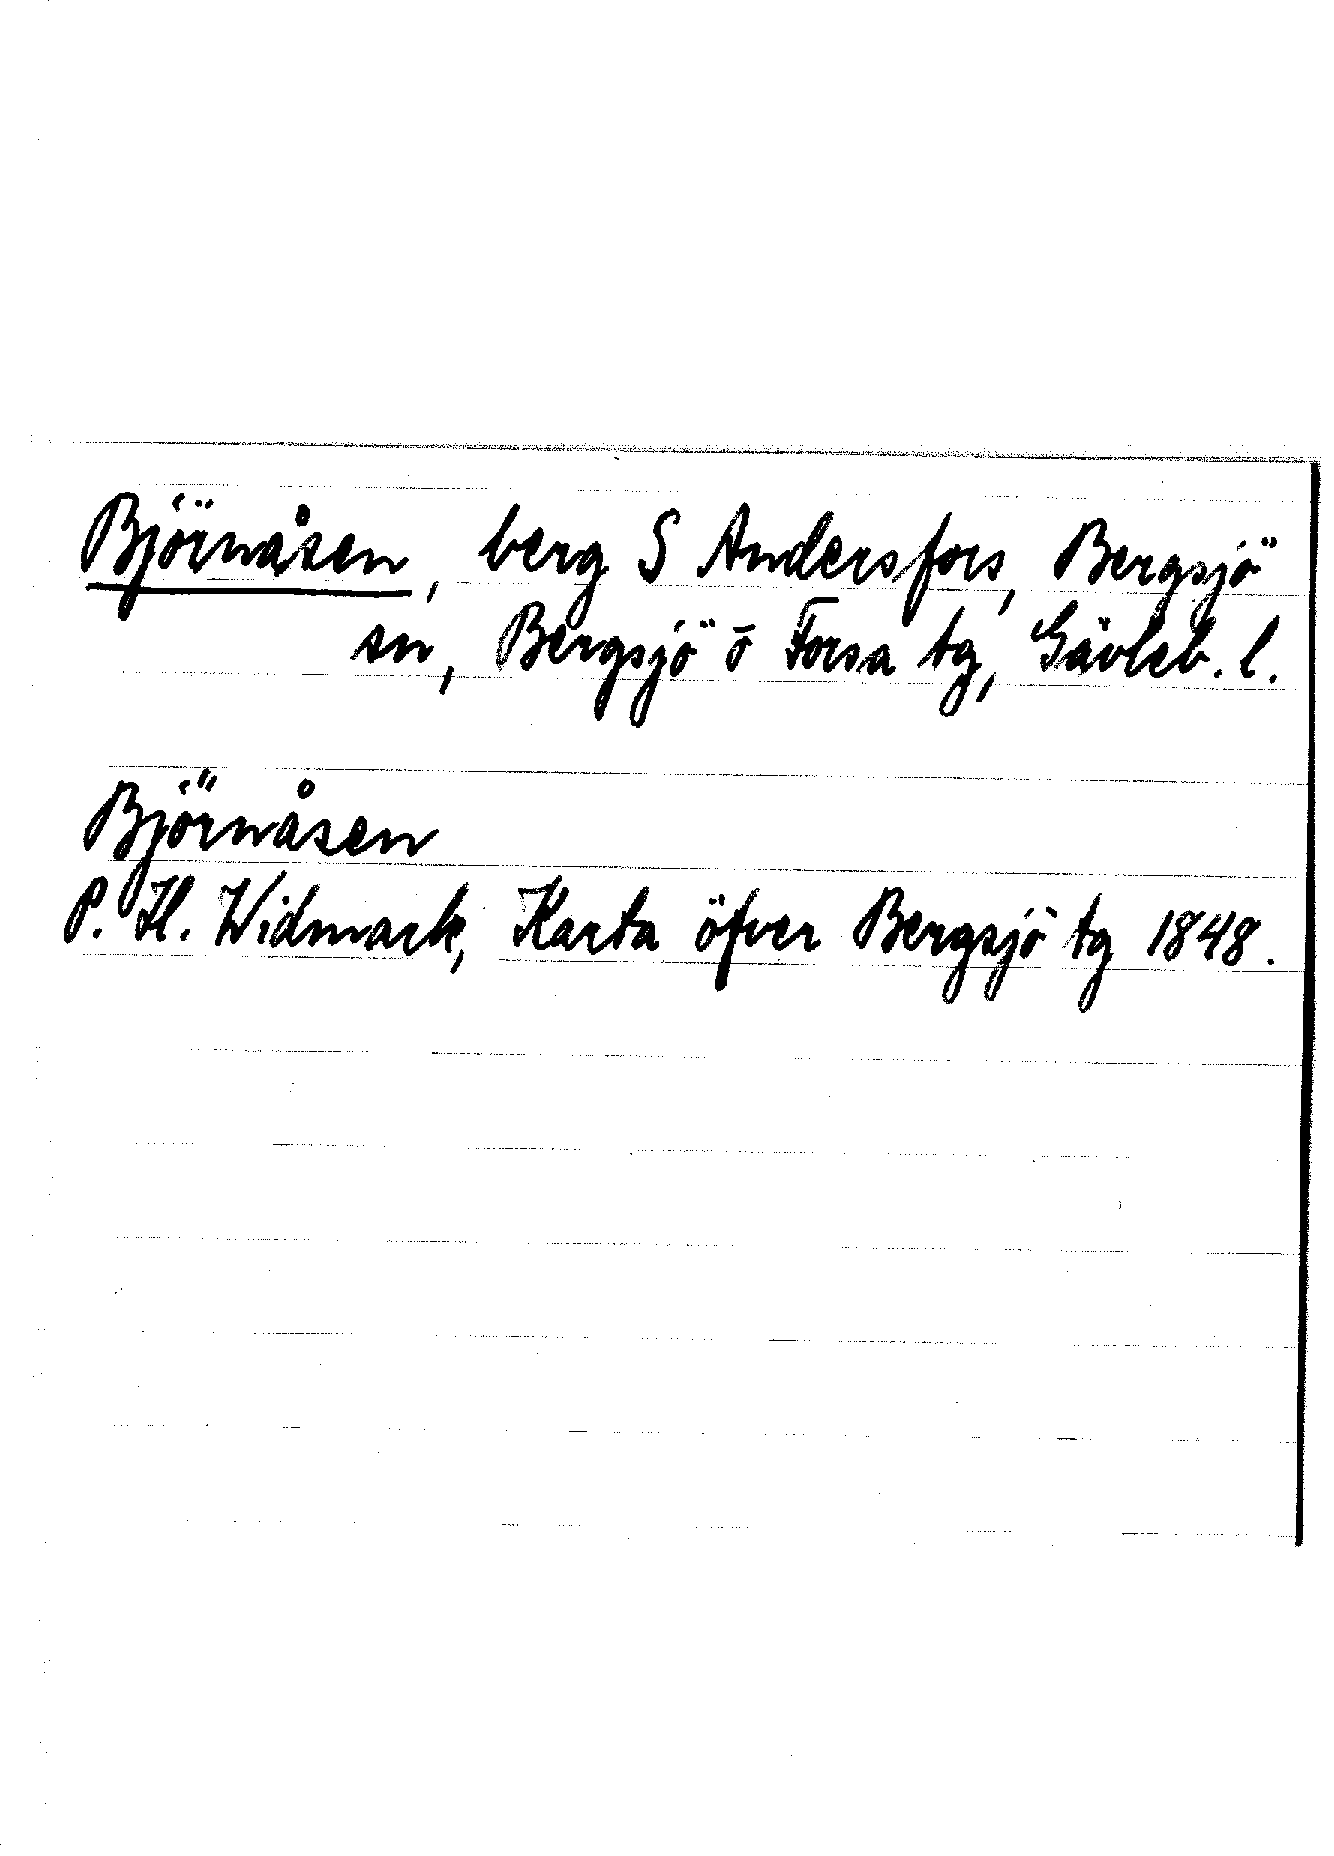 Björnåsen, berg S Andersfors, Bergsjö
sn, Bergsjö o Forsa tg, Gävleb. l.
Björnåsen
P. H. Widmark, Karta öfver Bergsjö tg 1848.